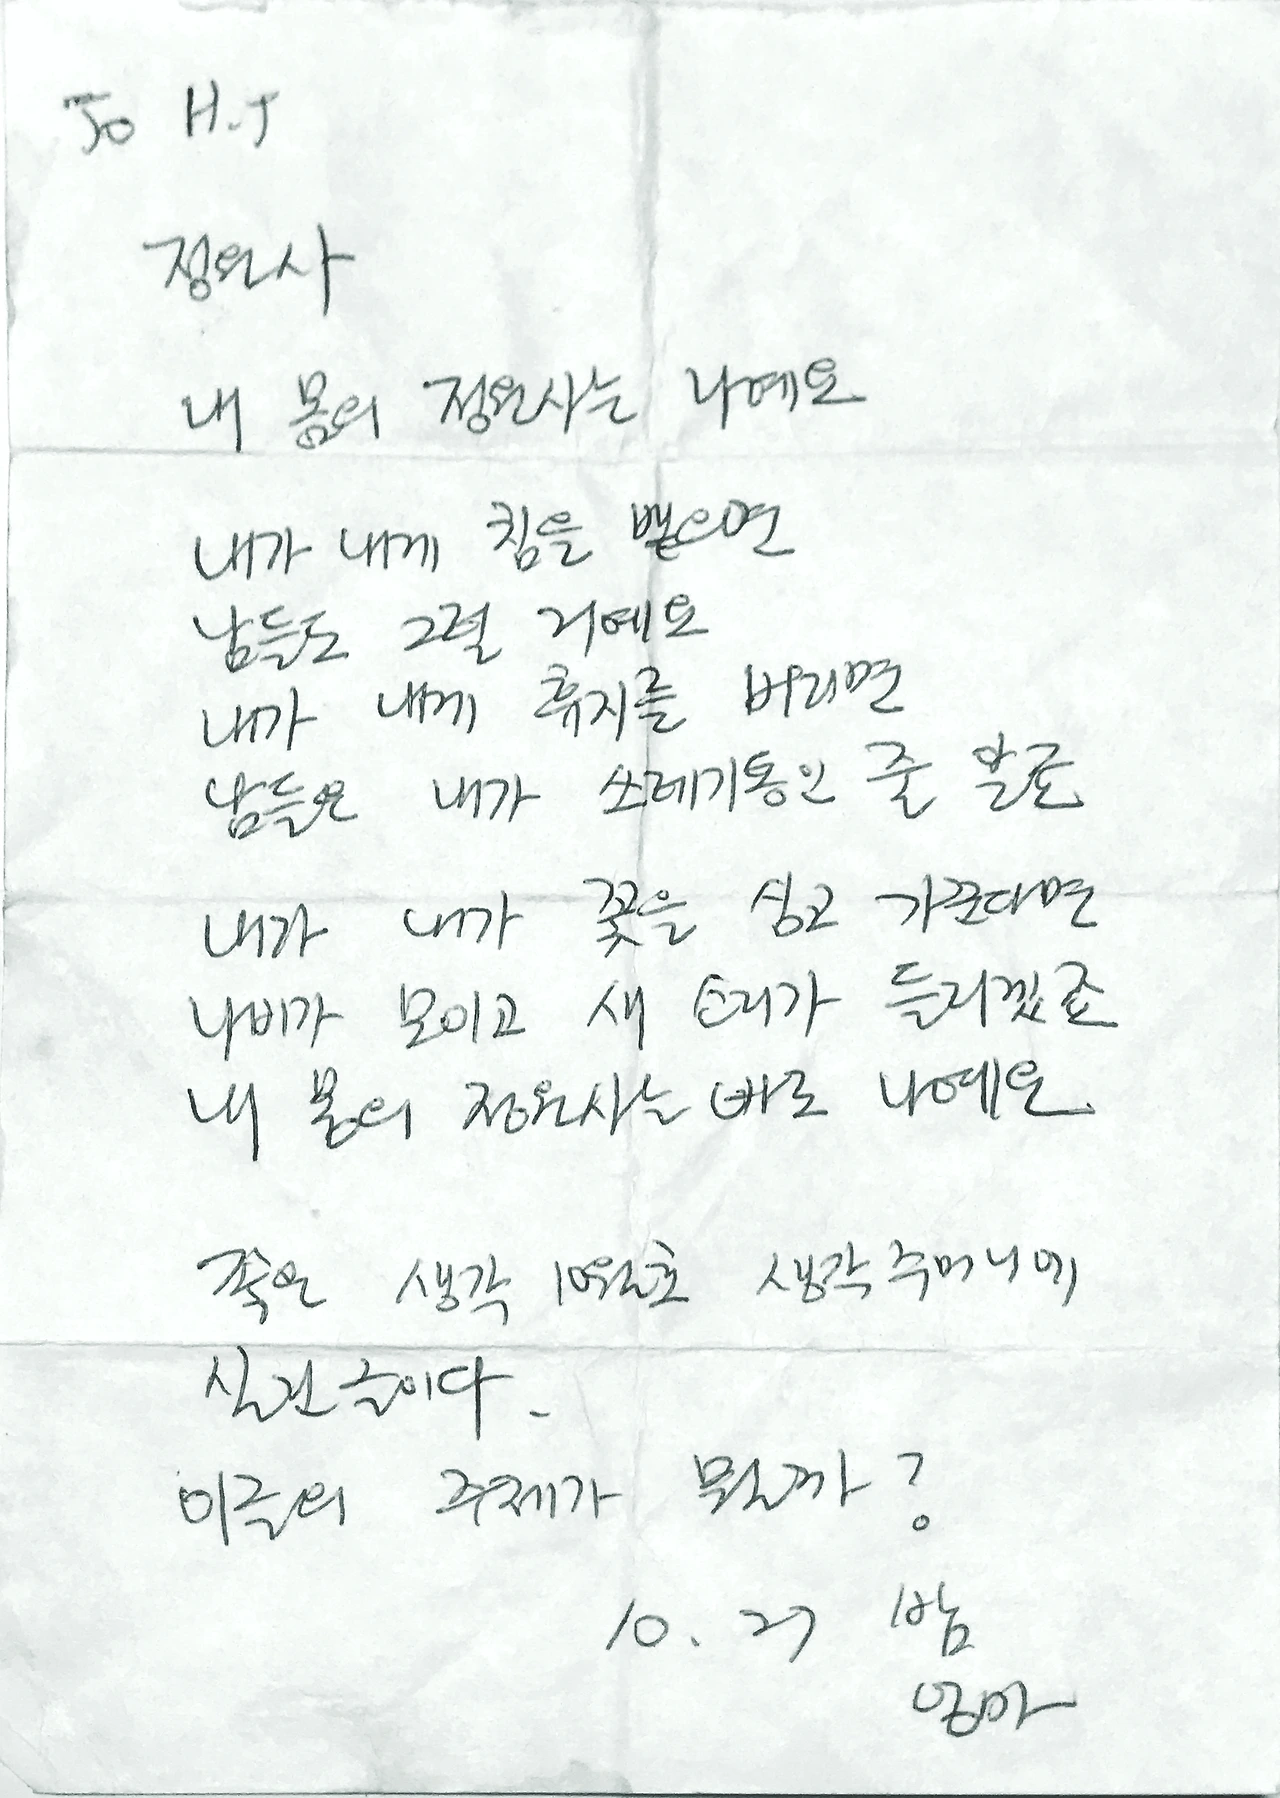 To H.J
정원사
내 몸의 정원사는 나예요
내가 내게 침을 뱉으면
남들도 그럴 거예요
내가 내게 휴지를 버리면
남들은 내가 쓰레기통인 줄 알죠
내가 내가 꽃을 심고 가꾼다면
나비가 모이고 새 소리가 들리겠죠
내 몸의 정원사는 바로 나예요
죽은 생각 생각주머니에
실린 글이다.
이글의 주제가 뭘까?
10. 27 밤
엄마